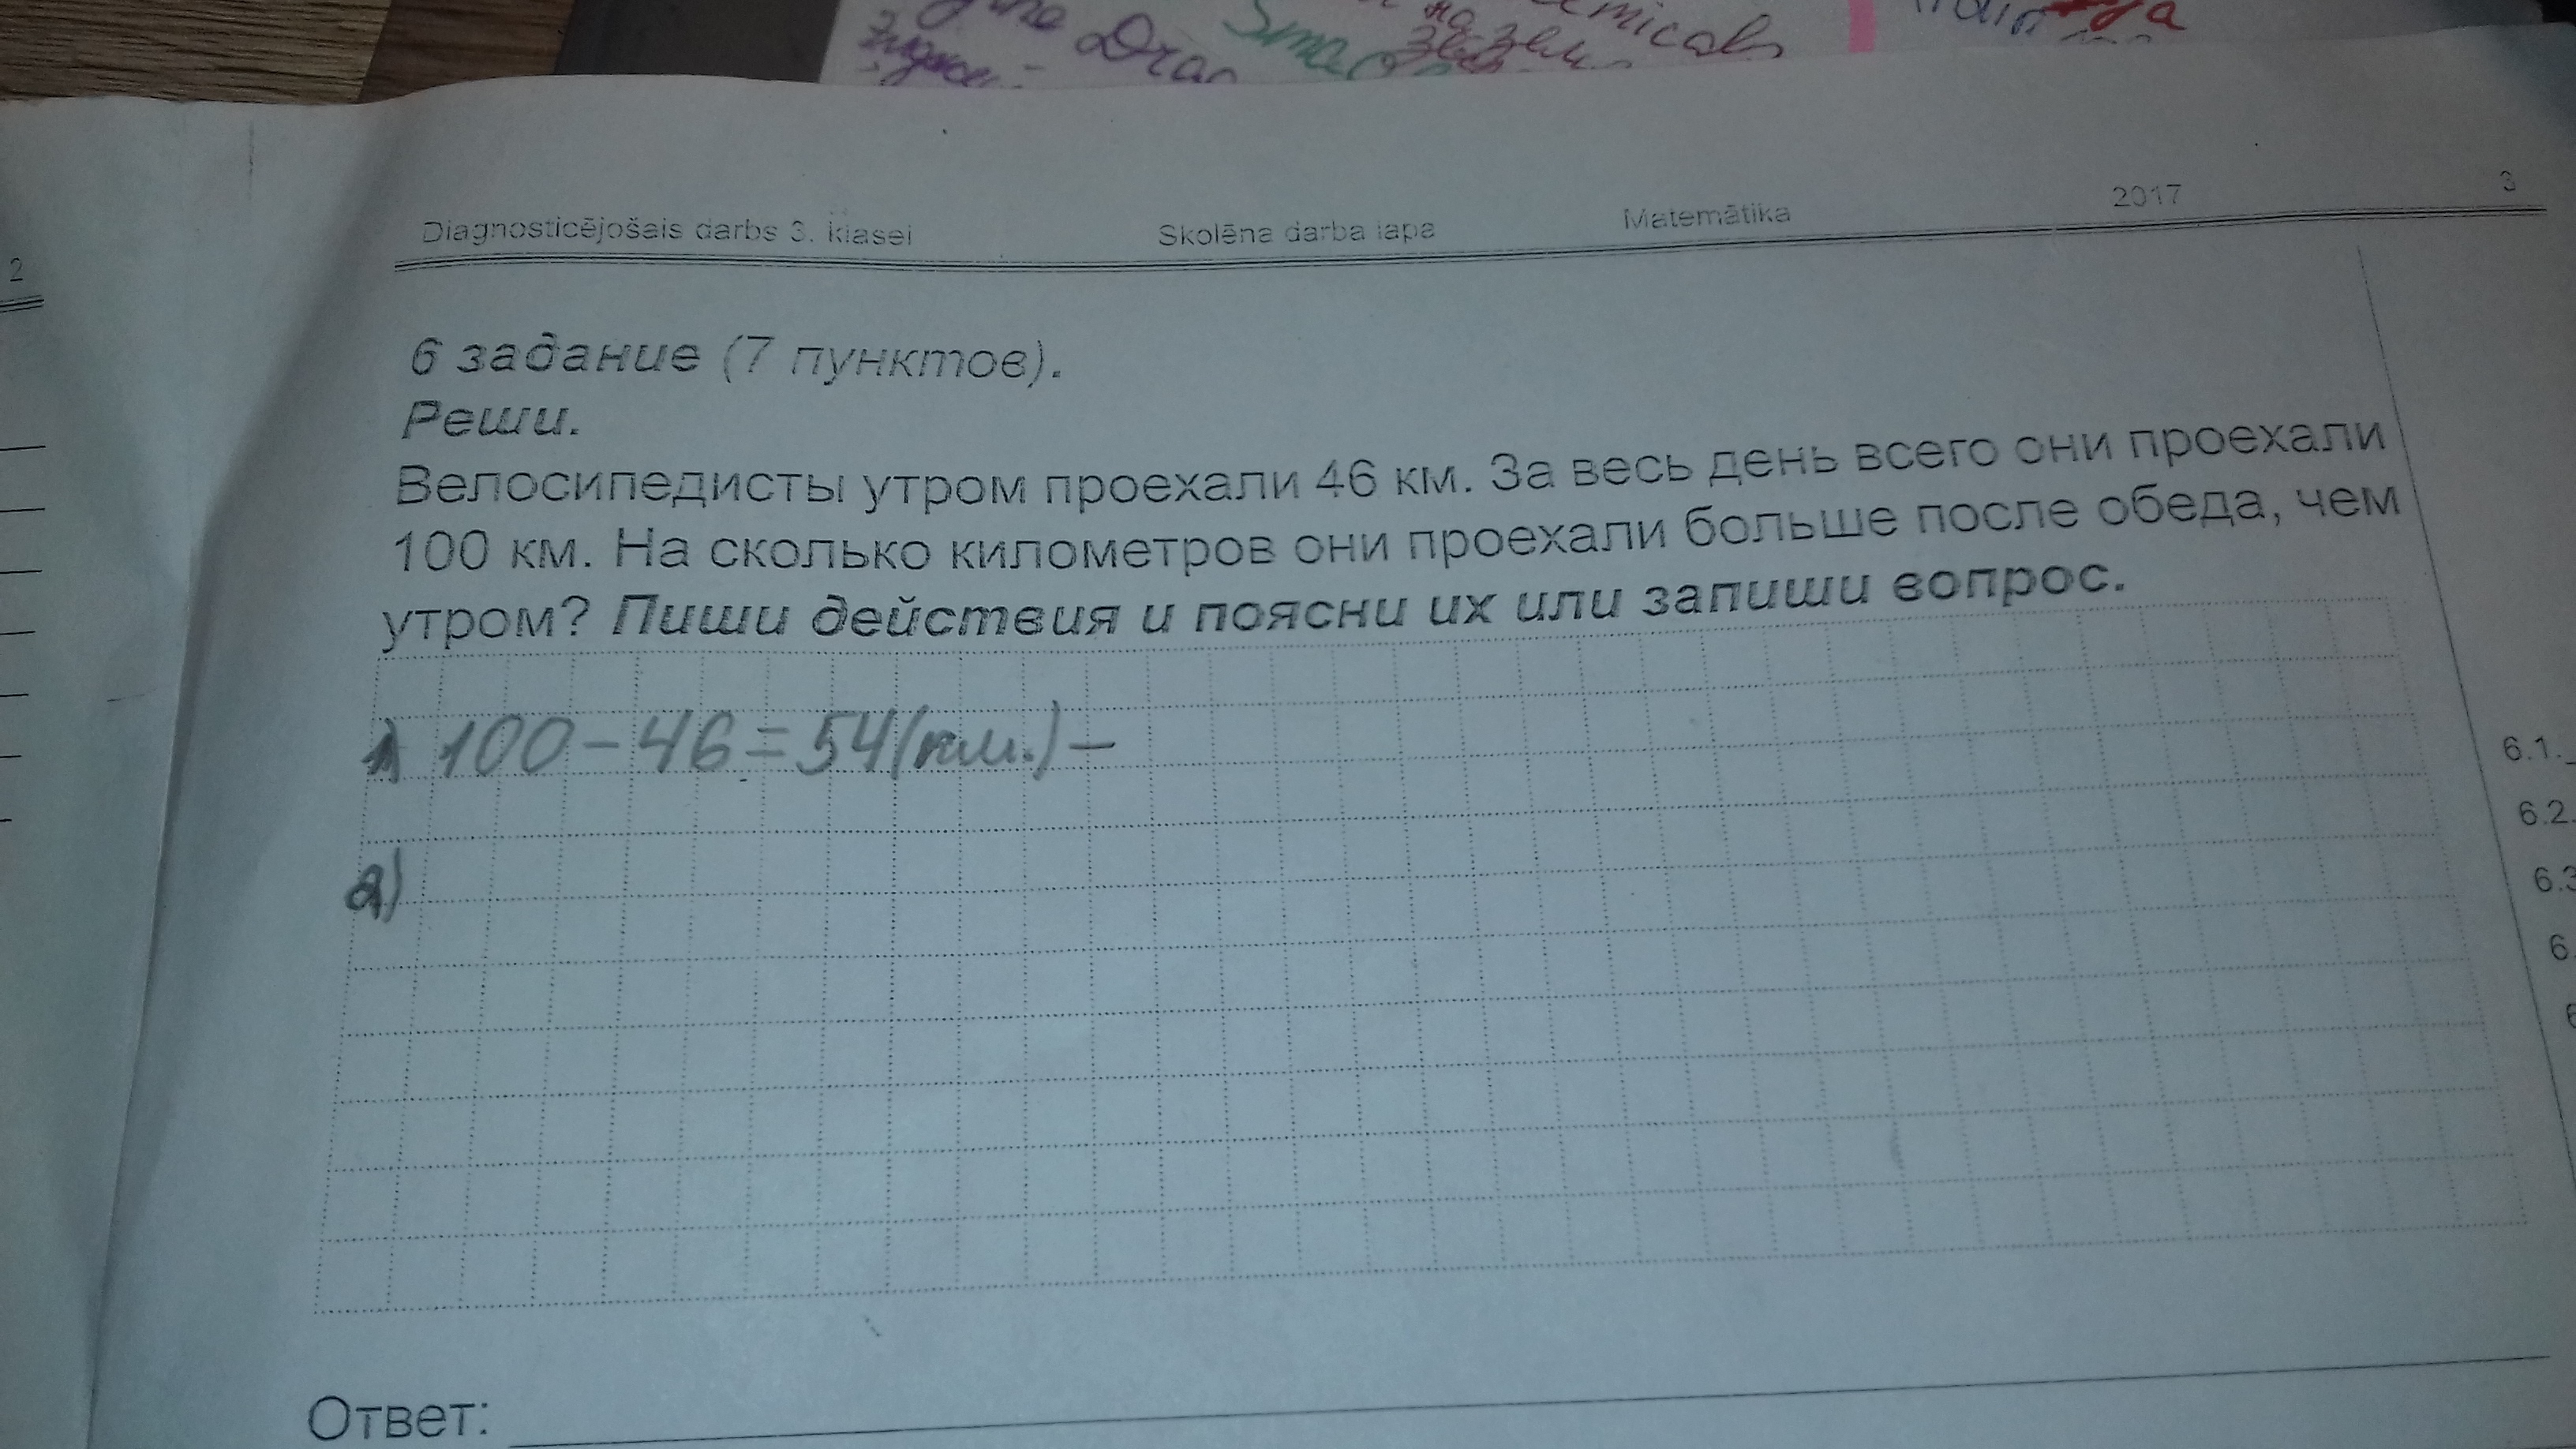 Dra
Sma
на
emicals
2
Diagnosticējošais darbs 3. klasei Skolēna darba lapa Matemātika 2017 3
6 задание (7 пунктов).
Реши.
Велосипедисты утром проехали 46 км. За весь день всего они проехали
100 км. На сколько километров они проехали больше после обеда, чем
утром? Пиши действия и поясни их или запиши вопрос.
1) 100-46=54(км.)–
2)
6.1.
6.2.
6.3
6.
6
Ответ: